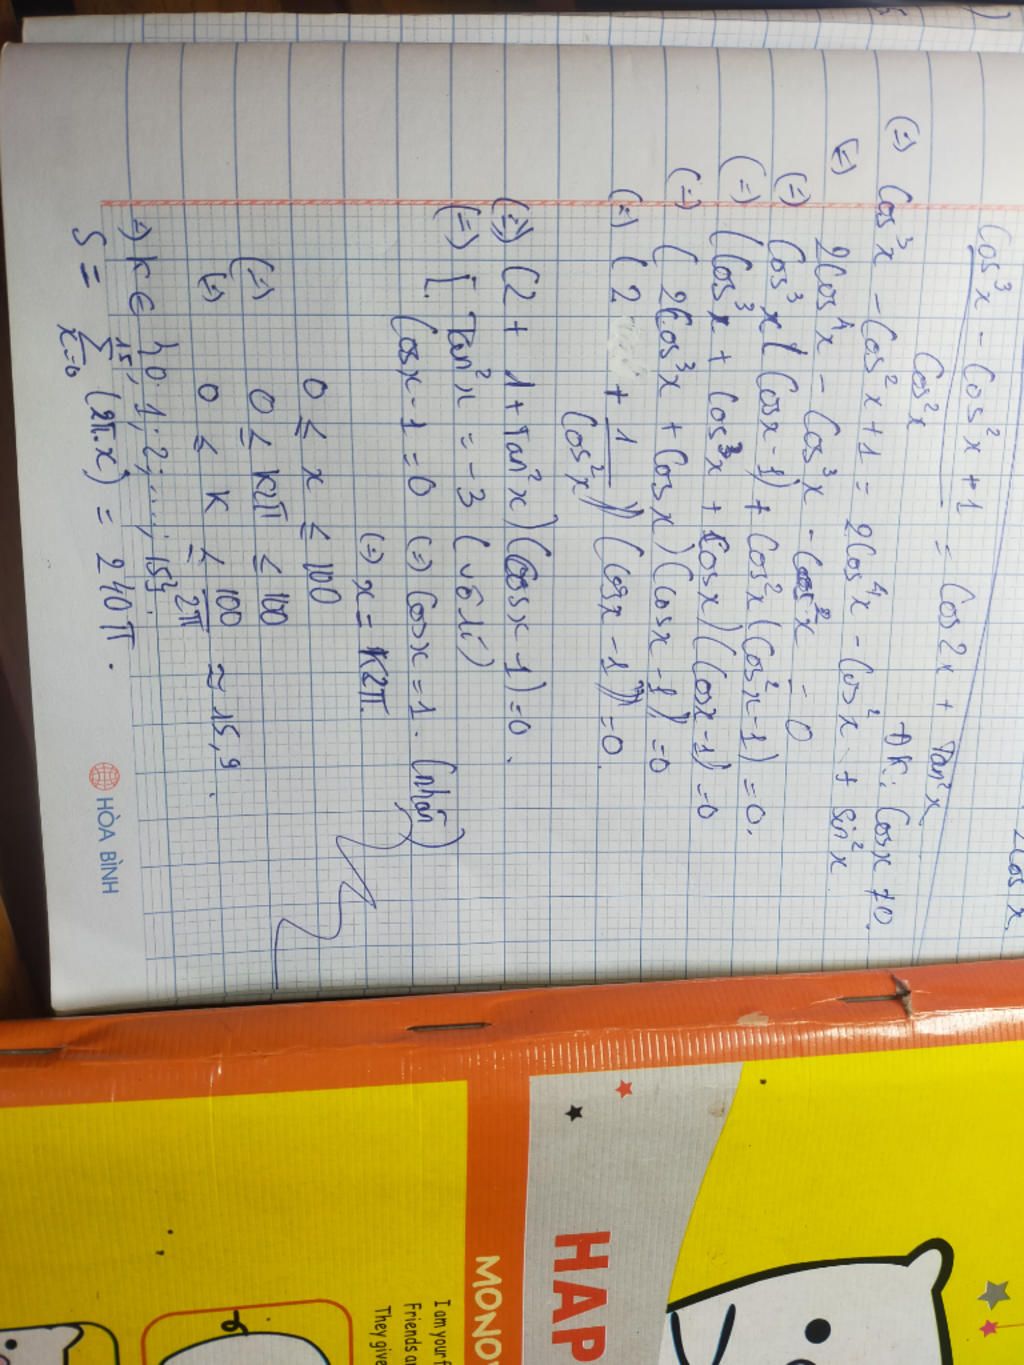 2Cos x
Cos³x - Cos²x + 1 / Cos²x = Cos2x + Tan²x
ĐK: Cosx ≠ 0.
(=) Cos³x - Cos²x + 1 = 2Cos⁴x - Cos²x + Sin²x
(=) 2Cos⁴x - Cos³x - Cos²x = 0
(=) Cos³x (Cosx - 1) + Cos²x (Cos²x - 1) = 0.
(=) (Cos³x + Cos³x + Cosx) (Cosx - 1) = 0
(=) (2Cos³x + Cosx) (Cosx - 1) = 0
(=) (2 + 1/Cos²x) (Cosx - 1) = 0.
(=) (2 + 1 + Tan²x) (Cosx - 1) = 0.
(=) [ Tan²x = -3 (vô lí)
Cosx - 1 = 0 (=) Cosx = 1. (nhận)
(=) x = K2π.
0 ≤ x ≤ 100
(=) 0 ≤ K2π ≤ 100
(=) 0 ≤ K ≤ 100/2π ≈ 15,9.
=) K ∈ {0; 1; 2; ...; 15}.
S = 15 Σ x=0 (2π.x) = 240π.
HÒA BÌNH
HAP
MONO
I am your f
Friends a
They give